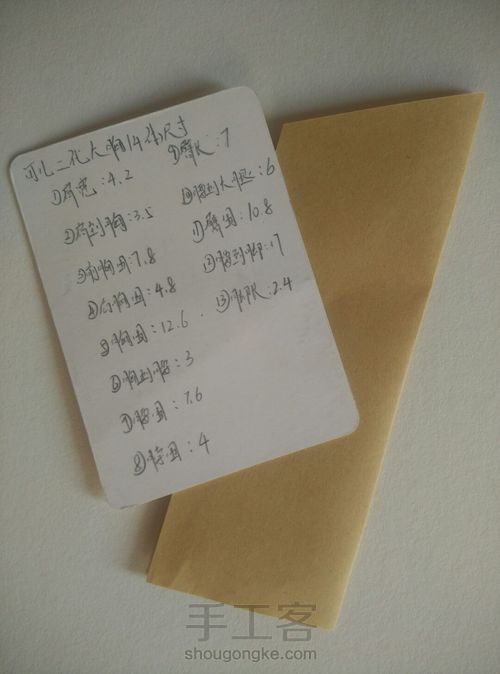 可儿二代大胸14体尺寸
①肩宽:4.2
②肩到胸:3.5
③前胸围:7.8
④后胸围:4.8
⑤胸围:12.6
⑥胸到腰:3
⑦腰围:7.6
⑧脖围:4
⑨臂长:7
⑩腰到大腿:6
⑪臀围:10.8
⑫腰到脚:17
手工客
shougongke.com